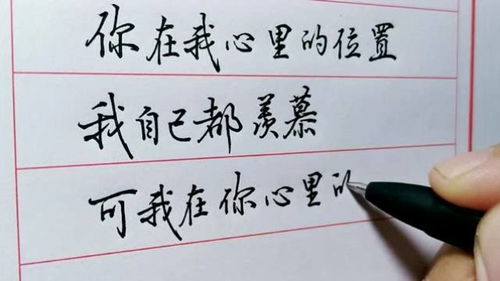 你在我心里的位置
我自己都羡慕
可我在你心里的